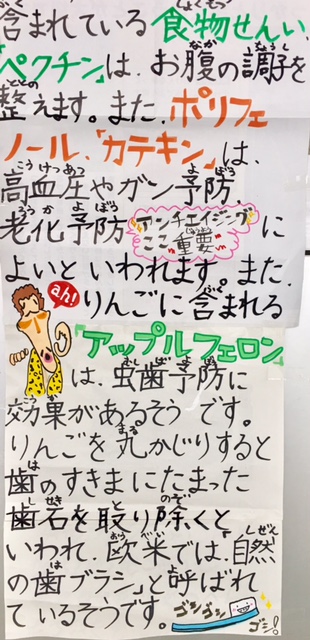 含まれている食物せんい
「ペクチン」は、お腹の調子を
整えます。また、ポリフェ
ノール、「カテキン」は、
高血圧やガン予防
老化予防
アンチエイジング
ここ重要
に
よいといわれます。また、
ah!
りんごに含まれる
「アップルフェロン」
は、虫歯予防に
効果があるそうです。
りんごを丸かじりすると
歯のすきまにたまった
歯石を取り除くと
いわれ、欧米では、「自然
の歯ブラシ」と呼ばれ
ているそうです。
ゴシゴシ
ゴシ!